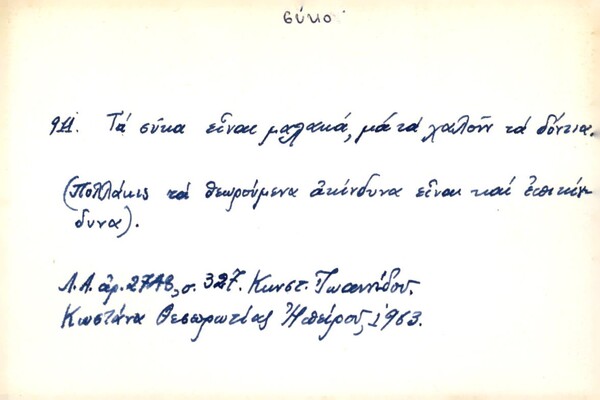 σύκο
911. Τά σῦκα εἶναι μαλακά, μά τά χαλοῦν τά δόντια.
(Πολλάκις τά θεωρούμενα ἀκίνδυνα εἶναι καί ἐπικίν-
δυνα).
Λ.Α. ἀρ. 2748, σ. 327. Κωνστ. Ἰωαννίδου.
Κωστάνα Θεσπρωτίας Ἠπείρου, 1963.